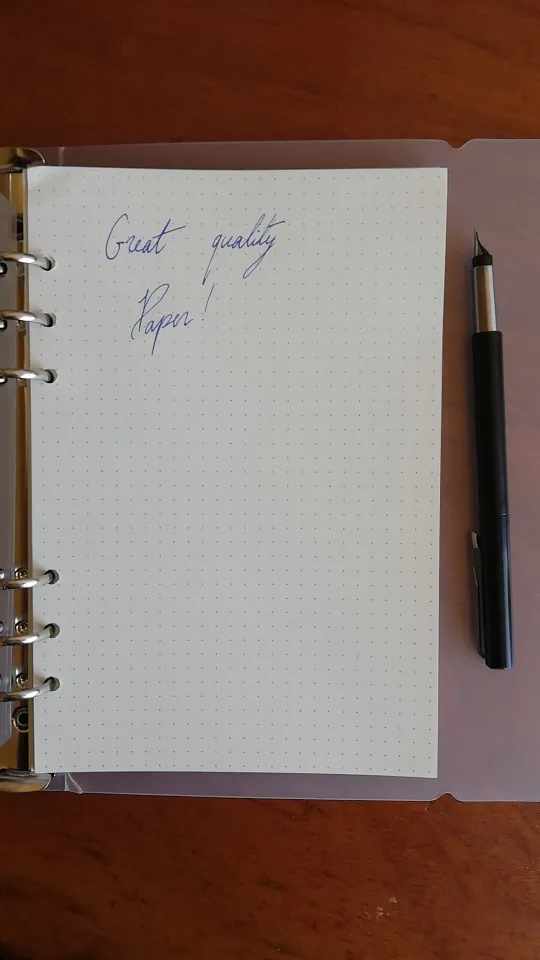 Great quality
Paper!